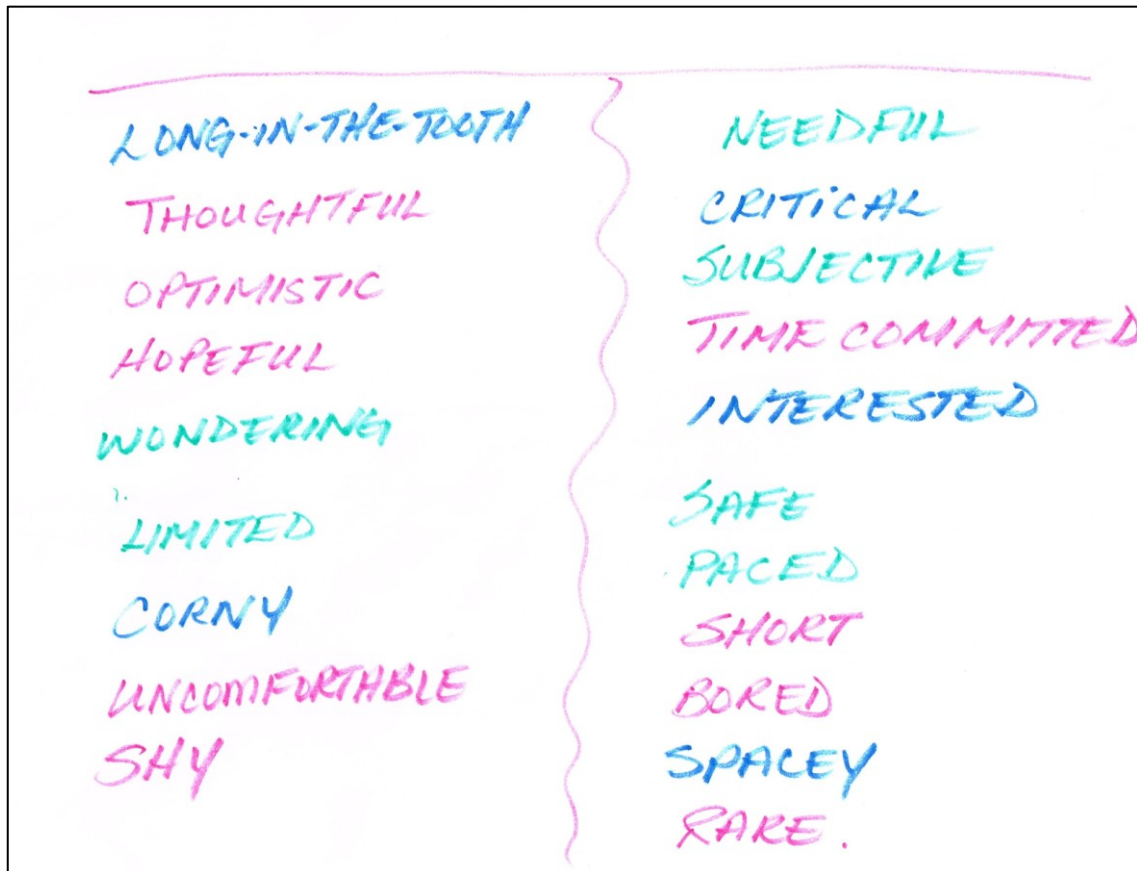 LONG-IN-THE-TOOTH
THOUGHTFUL
OPTIMISTIC
HOPEFUL
WONDERING
LIMITED
CORNY
UNCOMFORTABLE
SHY
NEEDFUL
CRITICAL
SUBJECTIVE
TIME COMMITTED
INTERESTED
SAFE
PACED
SHORT
BORED
SPACEY
RARE.